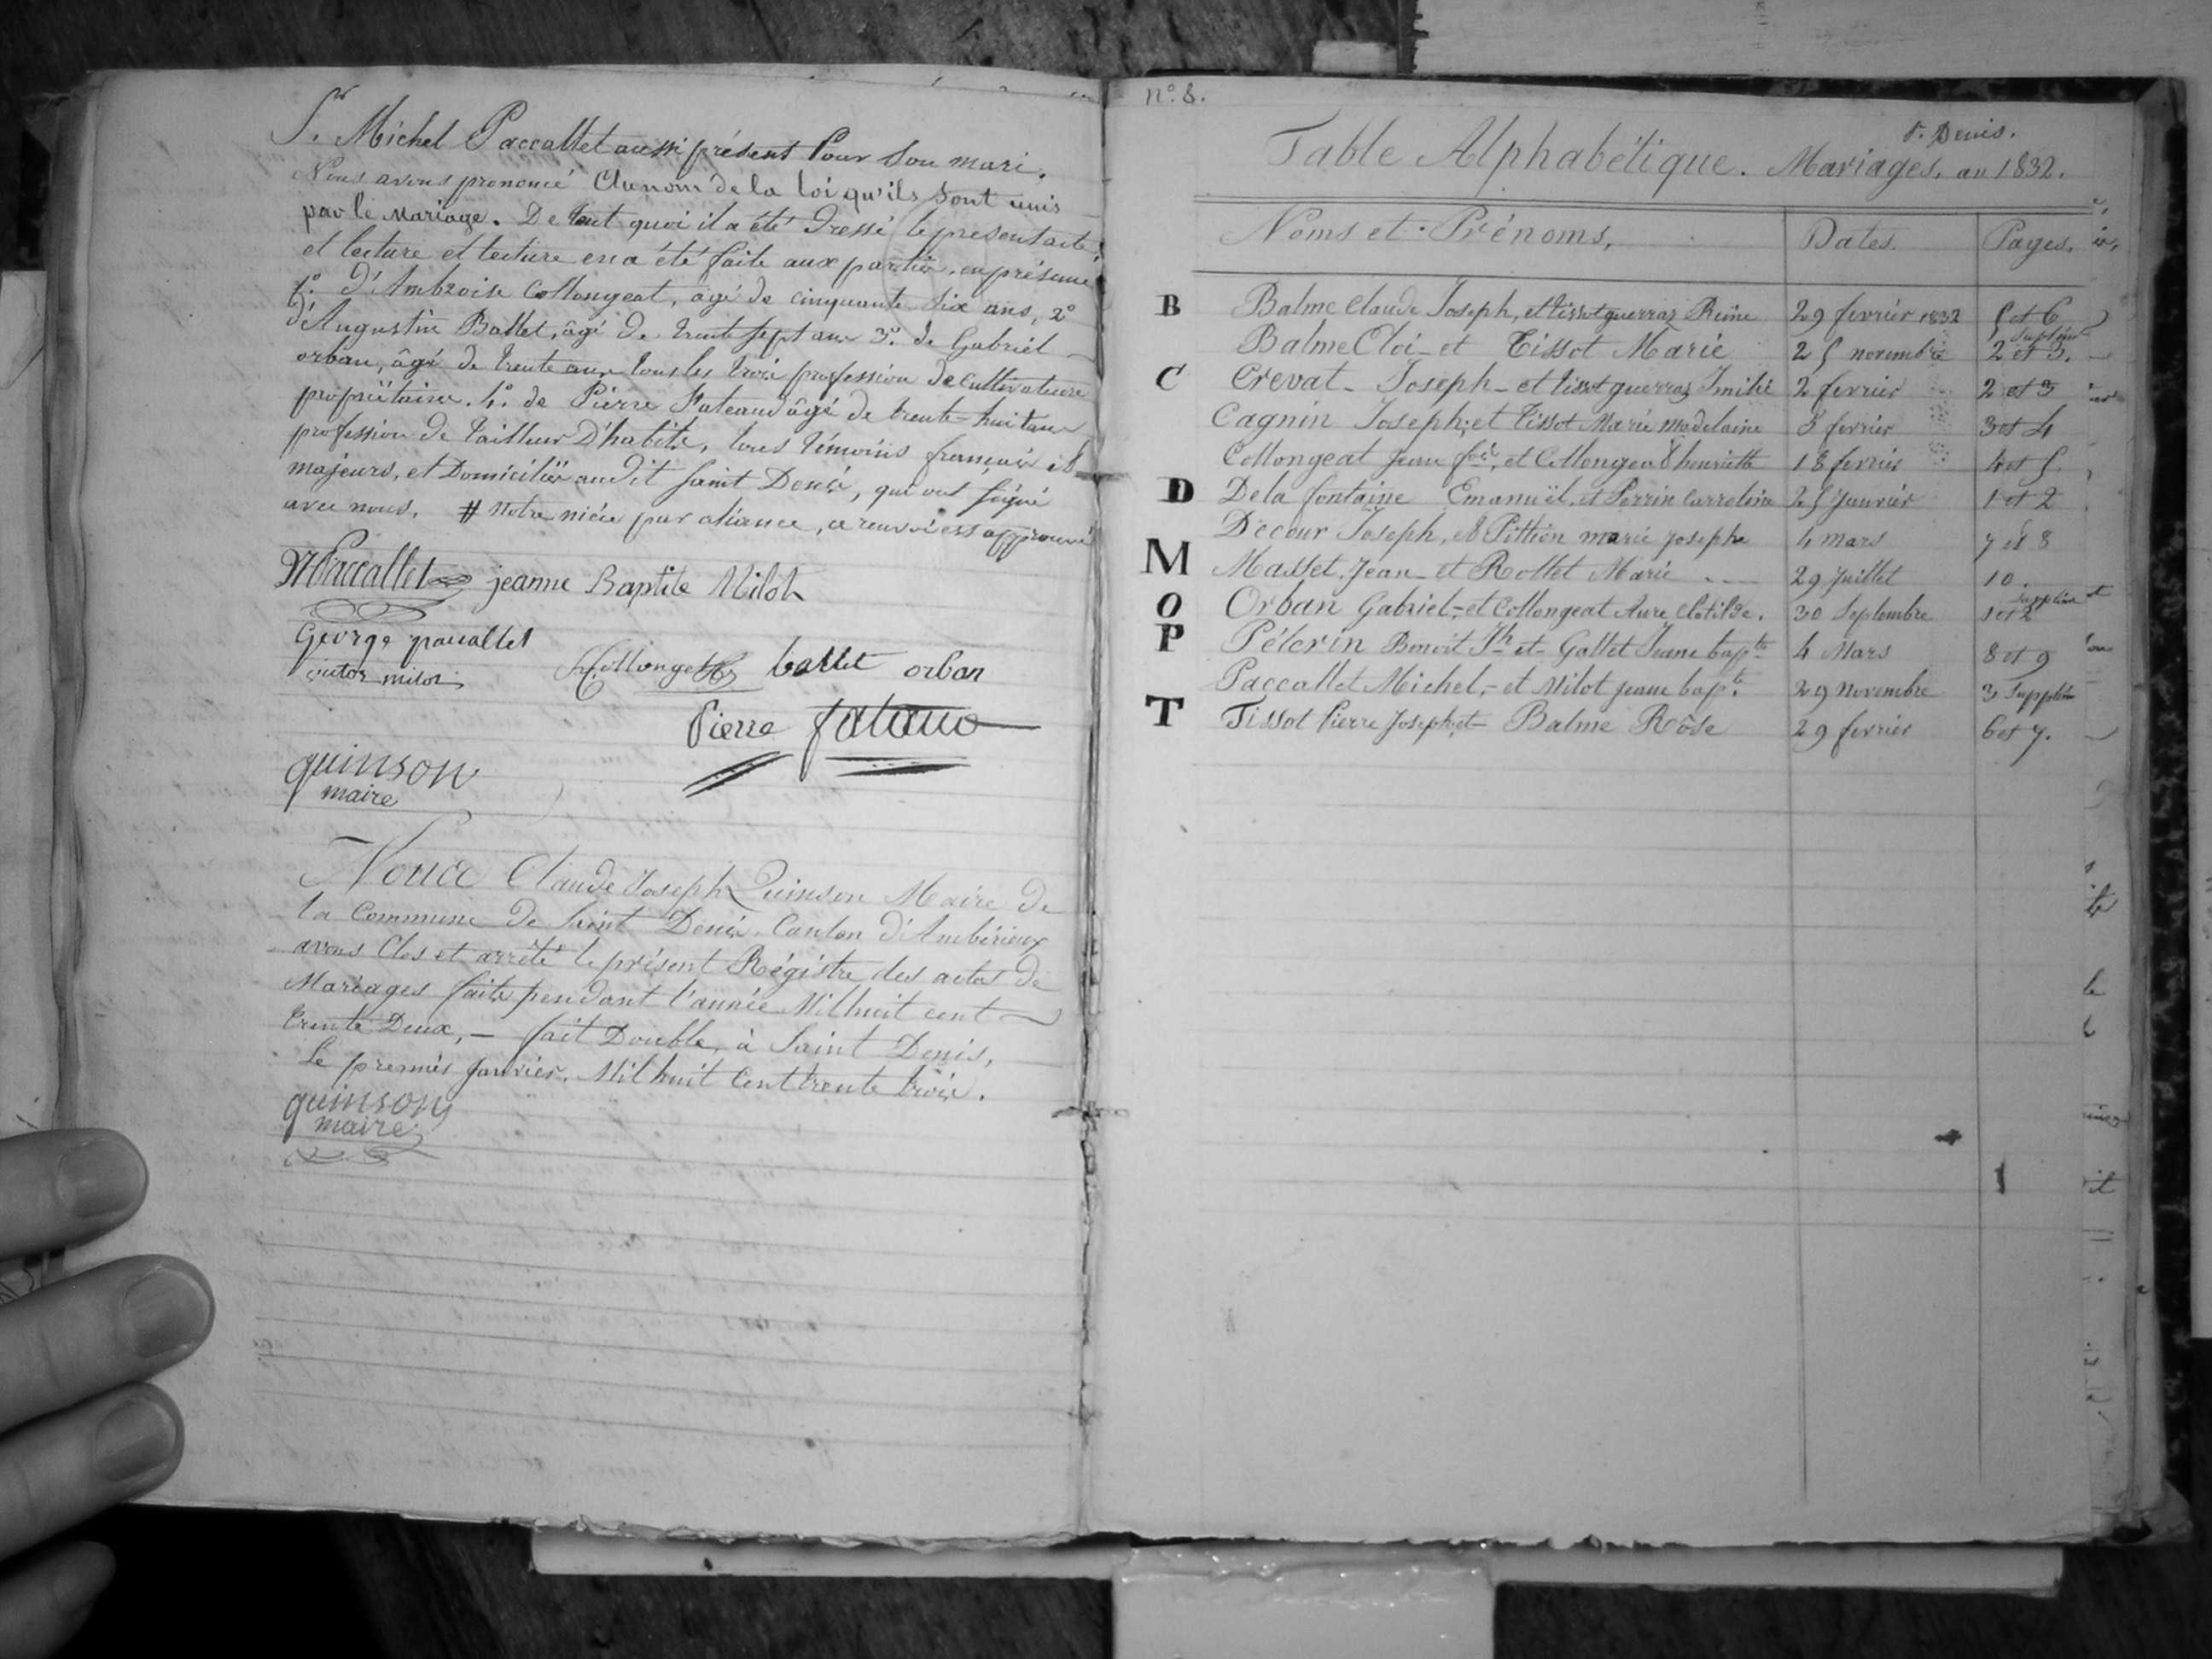 Sr. Michel Paccallet aussi présent Pour Son mari,
Nous avons prononcé Au nom de la loi qu'ils Sont unis
par le Mariage. De tout quoi il a été Dressé le présent acte,
et lecture et lecture en a été faite aux parties, en présence
1º. d'Ambroise Collongeat, âgé de cinquante Six ans, 2º
d'Augustin Ballet, âgé de trente Sept ans 3º. de Gabriel
orban, âgé de trente ans tous les trois profession de cultivateurs
propriétaires. 4º. de Pierre Fateaud âgé de trente-huit ans
profession de tailleur D'habits, tous témoins français et
majeurs, et Domiciliés audit Saint Denis, qui ont Signé
avec nous. # notre nièce par aliance, ce renvoi est approuvé
MPaccallet jeanne Baptite Milot
George paccallet
victor milot Collonge ballet orban
Pierre fateau
quinson
maire
Nous Claude Joseph Quinson Maire de
la Commune de Saint Denis, Canton d'Ambérieux
avons Clos et arrêté le présent Régistre des actes de
Mariages faits pendant l'année Mil huit cent
trente Deux, - fait Double, à Saint Denis,
Le premier janvier, Mil huit Cent trente trois.
quinson
maire
nº. 8.
St. Denis.
Table Alphabétique. Mariages, an 1832.
Noms et Prénoms, Dates. Pages.
B Balme Claude Joseph, et tissot guerraz Reine 29 fevrier 1832 5 et 6
Balme Cloi - et Tissot Marie 25 novembre 2 et 3. Supplém
C Crevat - Joseph - et tissot guerraz Imilie 2 fevrier 2 et 3
Cagnin Joseph, et tissot Marie madelaine 5 fevrier 3 et 4
Collongeat Jean fois, et Collongeat henriette 18 fevrier 4 et 5
D De la fontaine Emanuël, et Perrin Carroline 25 Janvier 1 et 2
Décour Joseph, et Pittion marie josephe 4 mars 7 et 8
M Masset, Jean - et Rollet Marie 29 Juillet 10.
O Orban Gabriel, - et Collongeat Aure Clotilde. 30 Septembre 1 et 2 Supplém
P Pélerin Benoit Jh - et - Gallet Jeane bapte 4 Mars 8 et 9
Paccallet Michel, - et Milot jeane bapte. 29 Novembre 3 Supplém
T Tissot Pierre Joseph, et - Balme Rôse 29 fevrier 6 et 7.